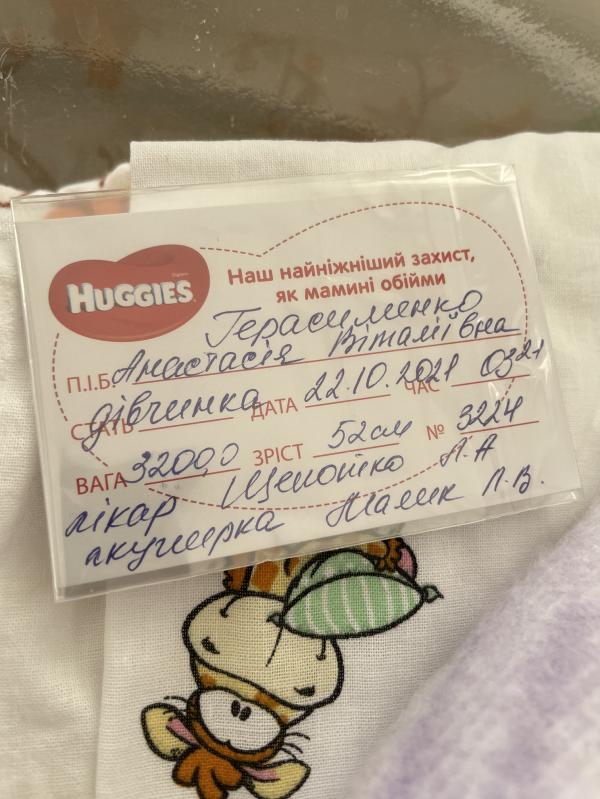 HUGGIES
Наш найніжніший захист,
як мамині обійми
Герасименко
П.І.Б. Анастасія Віталіївна
СТАТЬ дівчинка ДАТА 22.10.2021 ЧАС 03 21
ВАГА 3200,0 ЗРІСТ 52см № 3224
лікар Щепотко Л.А
акушерка Малик Л.В.